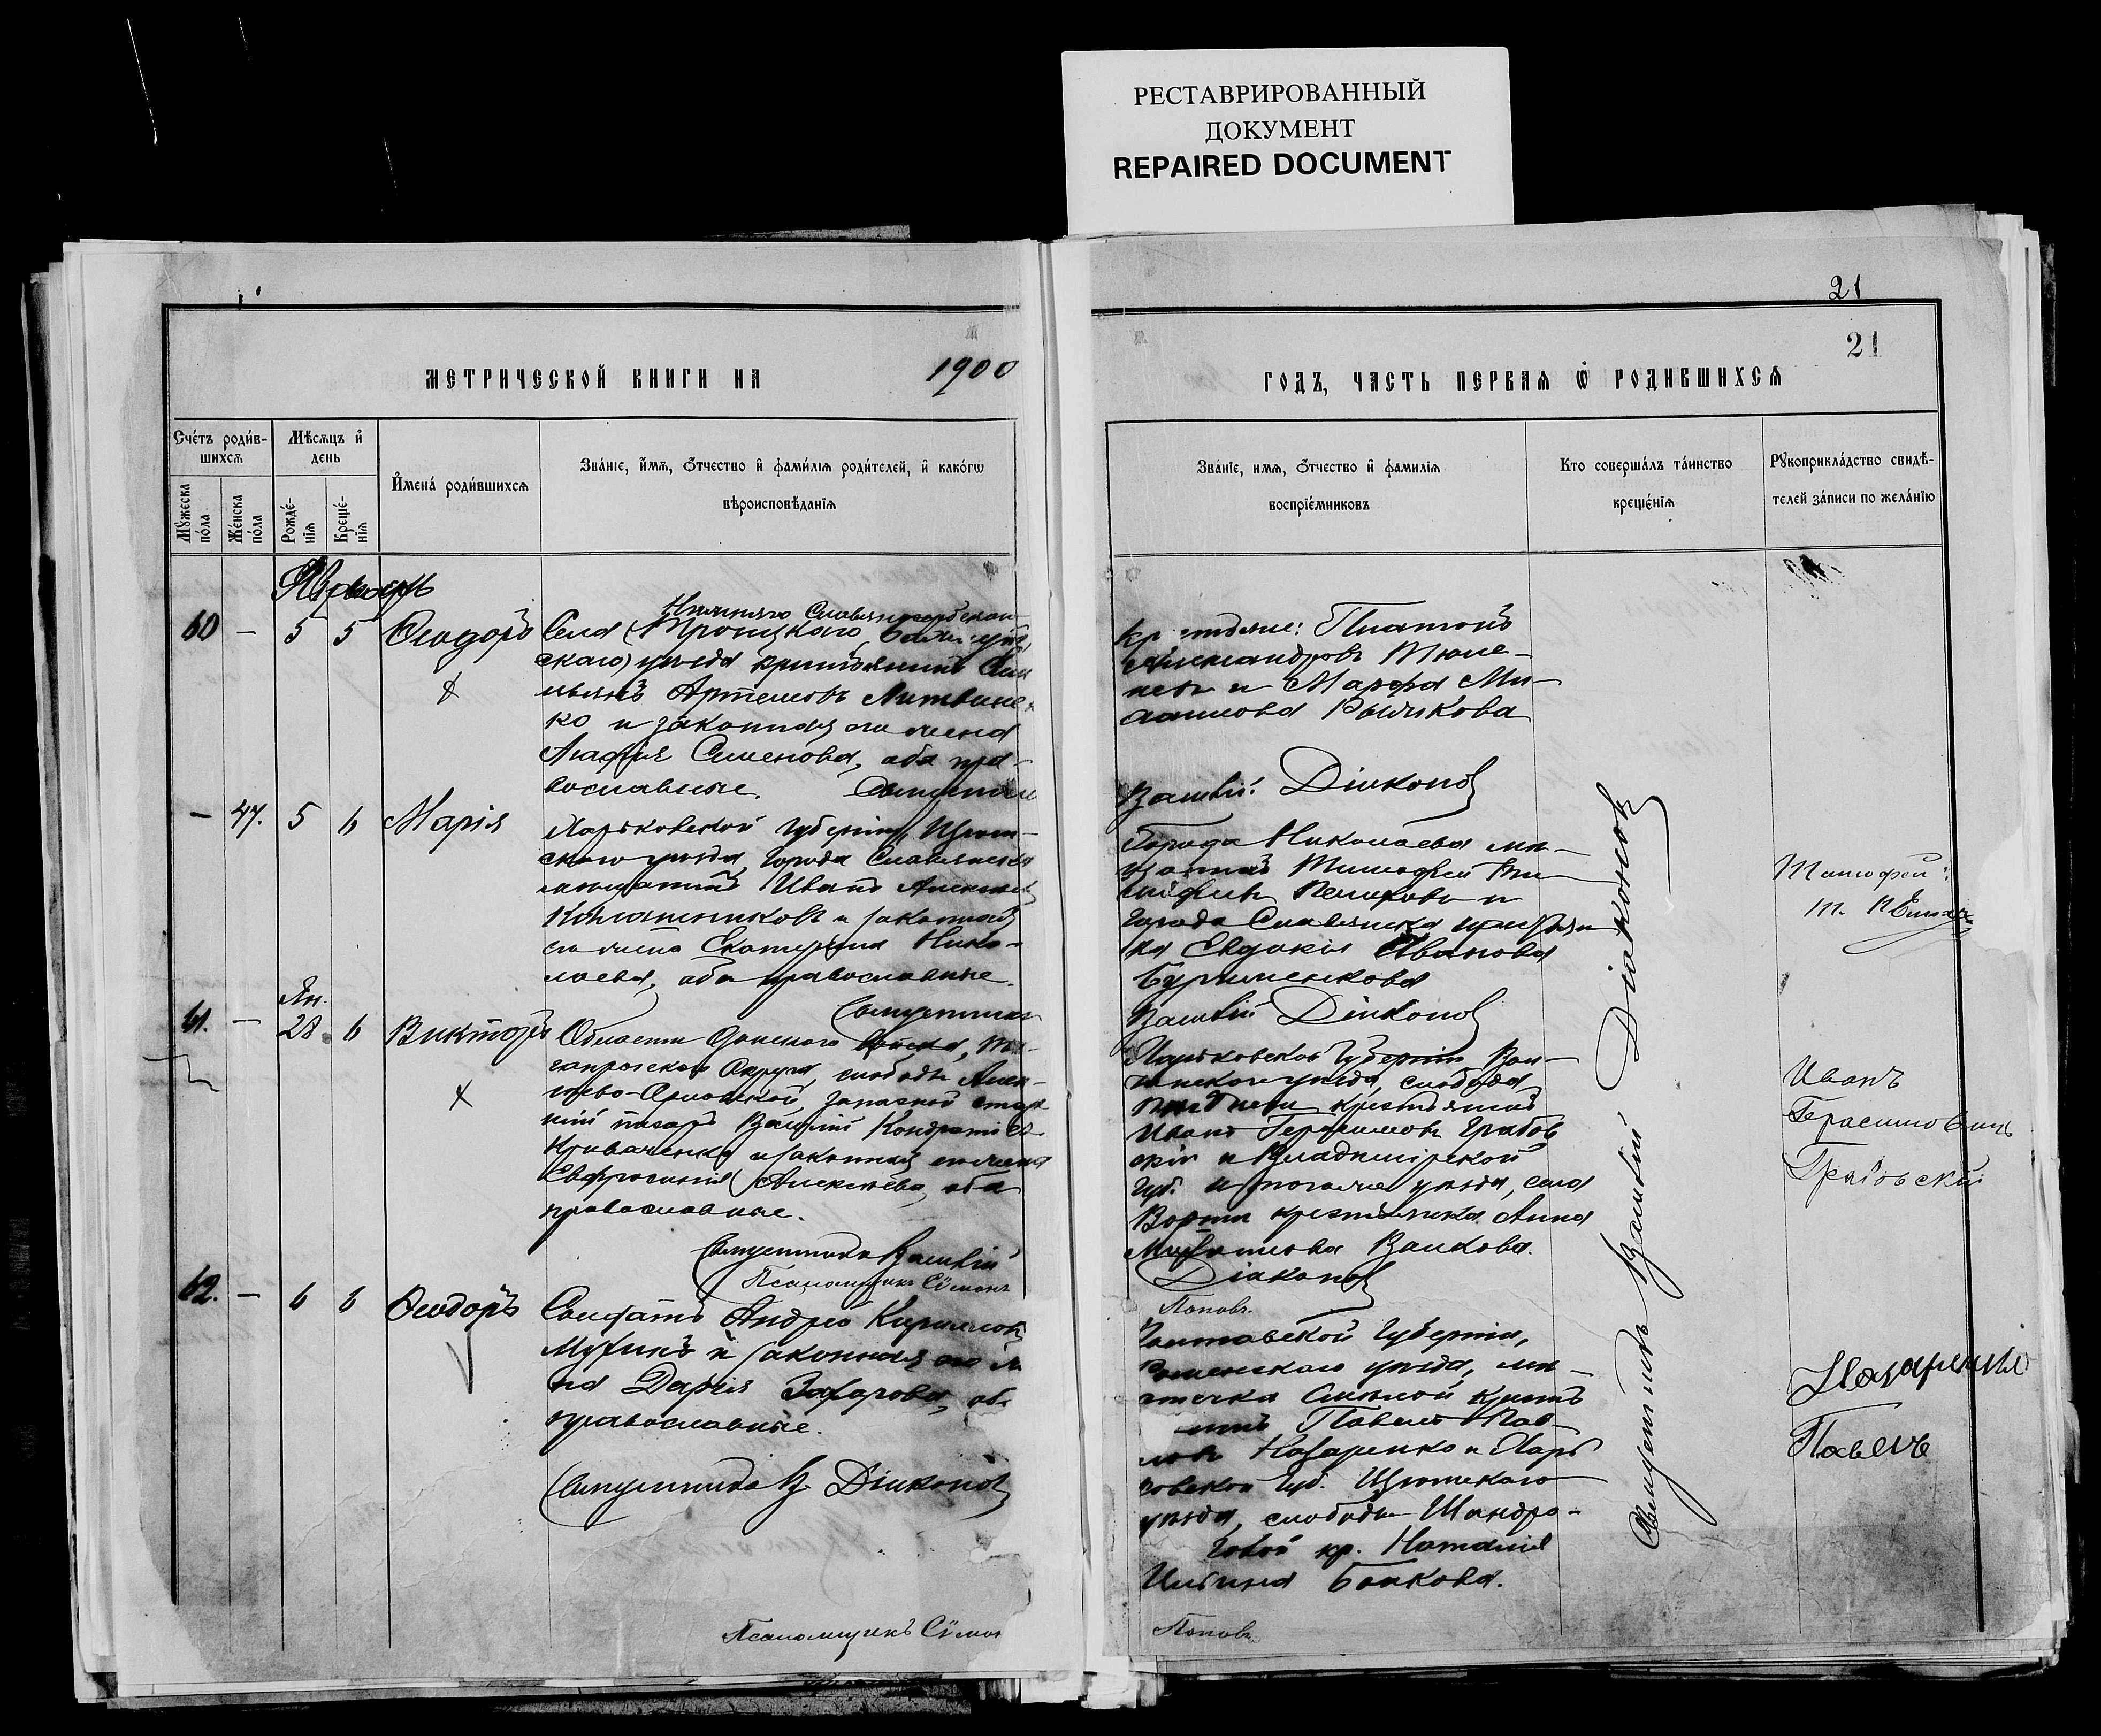 РЕСТАВРИРОВАННЫЙ
ДОКУМЕНТ
REPAIRED DOCUMENT
21
21
МЕТРИЧЕСКОЙ КНИГИ НА 1900
ГОДЪ, ЧАСТЬ ПЕРВАЯ Ѡ РОДИВШИХСЯ
Счетъ родив-
шихся
Мужеска
пола
Женска
пола
Мѣсяцъ и
день
Рожде-
нія
Креще-
нія
Имена родившихся
Званіе, имя, отчество и фамилія родителей, и какогѡ
вѣроисповѣданія
Званіе, имя, отчество и фамилія
воспріемниковъ
Кто совершалъ таинство
крещенія
Рукоприкладство свидѣ-
телей записи по желанію
60 – 5 5 Ѳеодоръ
Села Троицкаго
скаго уѣзда крестьянинъ
Артемовъ Литвинен
ко и законная его жена
Агафія Семенова, оба пра-
вославные.
Платонъ
Александровъ Тюле-
невъ и Марфа Ми-
хаилова Рычкова
Василій Діаконовъ
– 47. 5 6 Марія
Харьковской губерніи, Изюм-
скаго уѣзда, города Славянска
мѣщанинъ Иванъ Алексѣев
и законная
его жена Екатерина Нико-
лаева, оба православные.
Священникъ
Города Николаева мѣ-
щанинъ Тимофей
и
города Славянска
ка Евдокія Иванова
Бурлаченкова
Василій Діаконовъ
Тимофей
61. – Ян. 28 6 Викторъ
Области Донскаго Войска, Та-
ганрогскаго Округа, слободы Алек-
сѣево-Орловской, запасной стар
шій писарь Василій Кондратьев
Криваченко и законная его жена
Евфросинія Алексѣева, оба
православные.
Священникъ Василій
Псаломщикъ Сімонъ
Харьковской Губерніи Вал-
ковскаго уѣзда, слобода
крестьянинъ
Иванъ Герасимовъ Грабов
скій и Владимірской
губ. и того же уѣзда, села
Ворши крестьянка Анна
Михаилова Волкова.
Діаконовъ
Поповъ.
Иванъ
Герасимовичъ
Грабовскій
62. – 6 6 Ѳеодоръ
Солдатъ Андрей Кириллов
Мухинъ и законная его же
на Дарія Захарова, оба
православные.
Священникъ В. Діаконовъ
Псаломщикъ Сімон
Полтавской Губерніи,
Роменскаго уѣзда, мѣ-
стечка Смѣлой крестья
нинъ Павелъ Пав-
ловъ Назаренко и Харь
ковской Губ. Изюмскаго
уѣзда, слободы Шандро-
говой кр. Наталія
Ильина Бойкова.
Поповъ
Назаренко
Павелъ
Священникъ Василій Діаконовъ